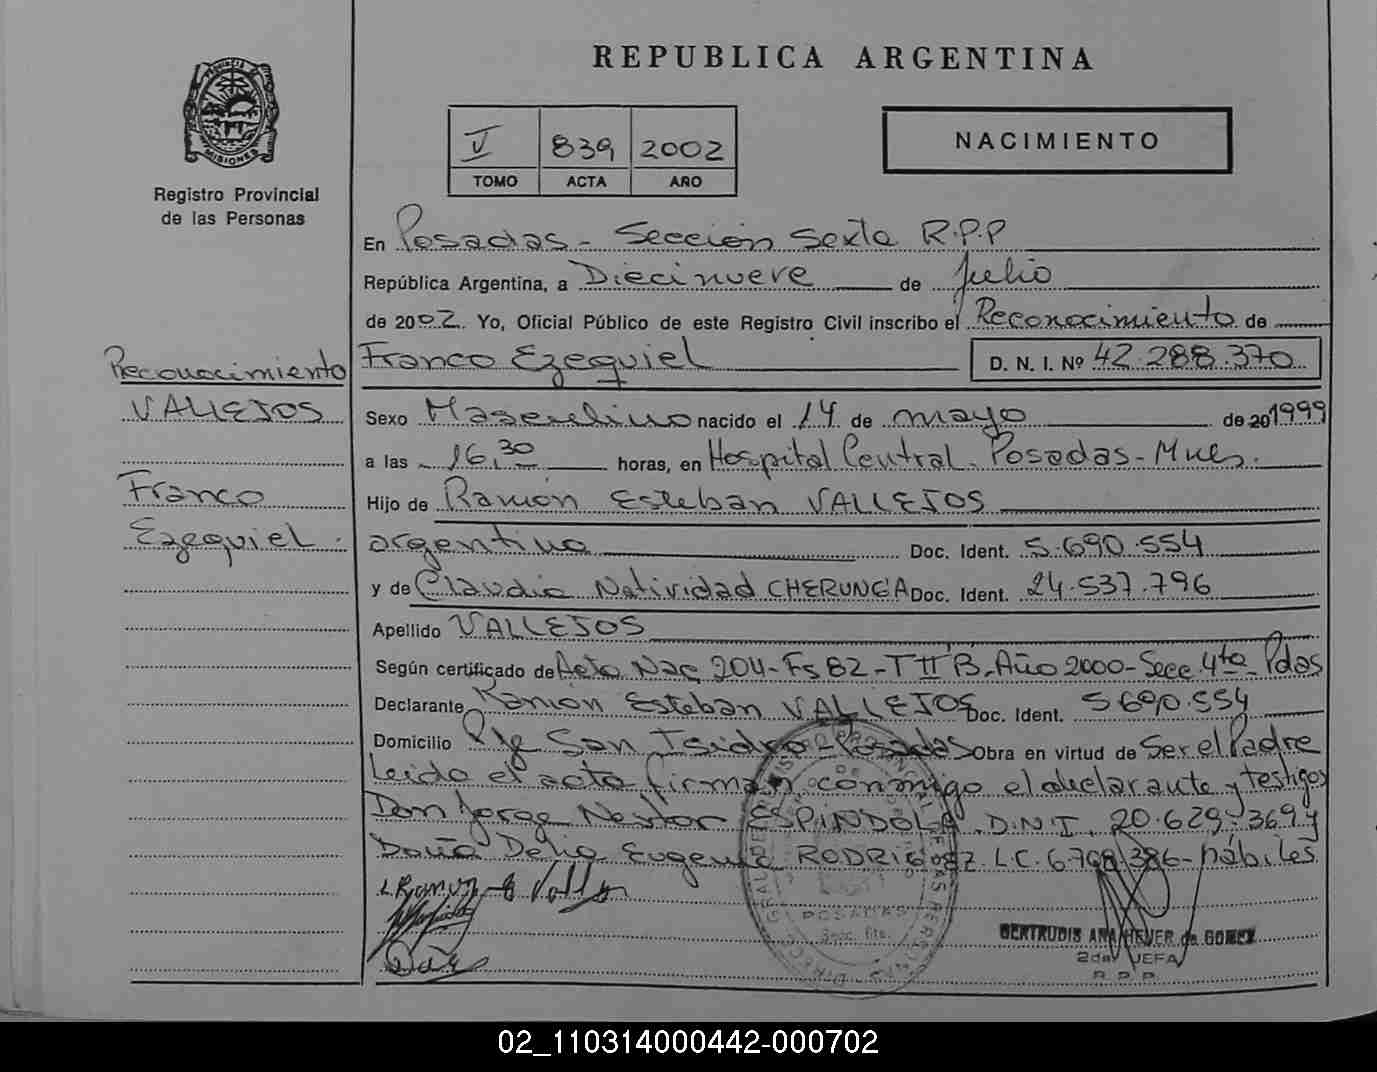 REPUBLICA ARGENTINA
PROVINCIA DE
MISIONES
Registro Provincial
de las Personas
V 839 2002
TOMO ACTA AÑO
NACIMIENTO
En Posadas - Sección Sexta R.P.P
República Argentina, a Diecinueve de Julio
de 2002. Yo, Oficial Público de este Registro Civil inscribo el Reconocimiento de
Franco Ezequiel D. N. I. Nº 42.288.370
Sexo Masculino nacido el 14 de mayo de 20 1999
a las 16,30 horas, en Hospital Central. Posadas - Mnes.
Hijo de Ramón Esteban VALLEJOS
argentino Doc. Ident. 5.690.554
y de Claudia Natividad CHERUNGA Doc. Ident. 24.537.796
Apellido VALLEJOS
Según certificado de Acta Nac 204 - Fs 82 - T II B - Año 2000 - Secc 4ta Pdas
Declarante Ramón Esteban VALLEJOS Doc. Ident. 5.690.554
Domicilio San Isidro - Posadas Obra en virtud de Ser el Padre
Leido el acto firman conmigo el declarante y testigos
Don Jorge Nestor ESPINDOLA D.N.I. 20.629.369 y
Doña Delia Eugenia RODRIGUEZ L.C. 6.708.386 - hábiles
Reconocimiento
VALLEJOS
Franco
Ezequiel.
POSADAS
Secc. 6ta.
GERTRUDIS ANA HEVER de GOMEZ
2da JEFA
R. P. P.
02_110314000442-000702